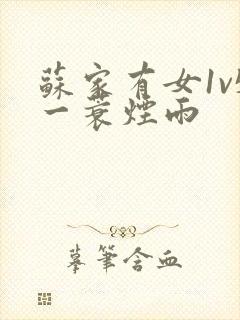 蘇家有女1v
一蓑煙雨
摹筆含血